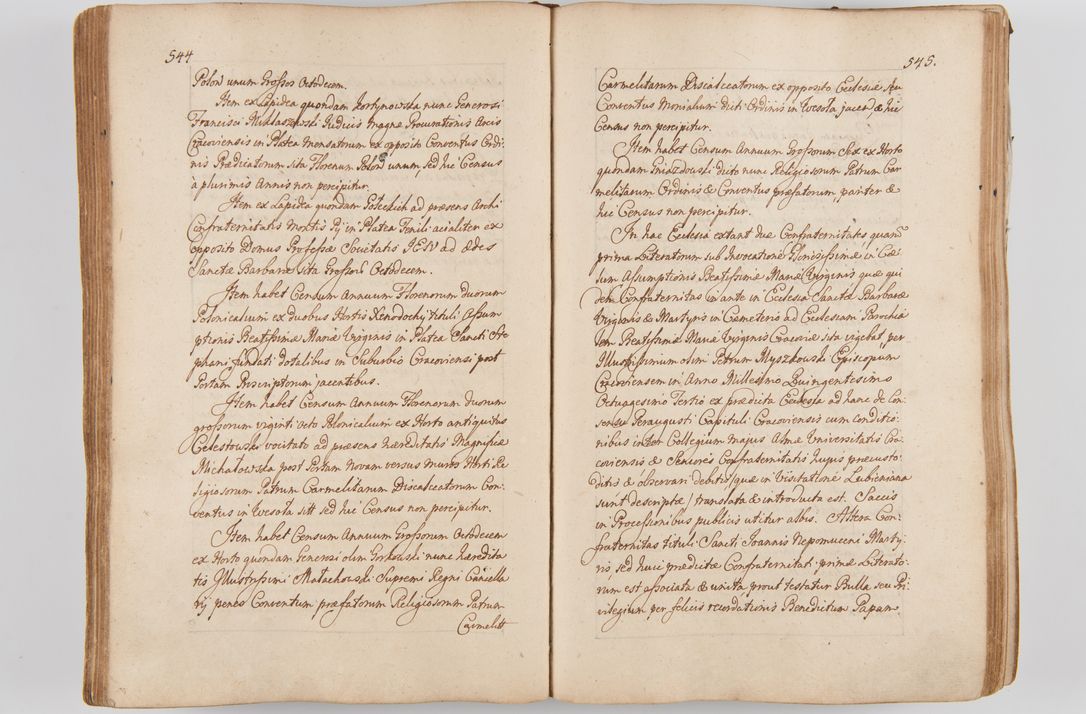 544
Polon̄ unum Grossos Octodecem.
Item ex Lapidea quondam Hortynowska nunc Generosi
Francisci Niklaszewski Judicis Magnæ Procurationis Arcis
Cracoviensis in Platea Mensatorum ex opposito Conventus Ordi-
nis Prædicatorum sita Florenum Polon̄ unum, sed hic Census
à plurimis Annis non percipitur.
Item ex Lapidea quondam Potockich ad præsens Archi
Confraternitatis Mortis Pij in Platea Fenili acialiter ex
opposito Domus Professæ Societatis JESU ad Ædes
Sanctæ Barbaræ sita Grossos Octodecem.
Item habet Censum Annuum Florenorum duorum
Polonicalium ex duobus Hortis Xenodochij tituli Assum
ptionis Beatissimæ Mariæ Virginis in Platea Sancti Ste
phani, fundati dotalibus in Suburbio Cracoviensi post
Portam Prescriptorum jacentibus.
Item habet Censum Annuum Florenorum duorum
grossorum viginti octo Polonicalium ex Horto antiquitus
Celestowski vocitato ad præsens hæreditatis Magnificæ
Michałowska post Portam Novam versus muros Horti Re
ligiosorum Patrum Carmelitarum Discalceatorum Con-
ventus in Wesoła sitt sed hic Census non percipitur.
Item habet Censum Annuum Grossorum Octodecem
ex Horto quondam Generosi olim Gorkowski nunc hæredita
tis Illustrissimi Małachowski Supremi Regni Cancella
rij penes Conventum præfatorum Religiosorum Patrum
Carmelit
545.
Carmelitarum Discalceatorum ex opposito Ecclesiæ
Conventus Monialium dicti Ordinis in Wesoła jacen̄, & hic
Census non percipitur.
Item habet Censum Annuum Grossorum Sex ex Horto
quondam Gniazdowski dicto nunc Religiosorum Patrum Car
melitarum Ordinis & Conventus præfatorum, pariter &
hic Census non percipitur.
In hac Ecclesia extant duæ Confraternitates quarū
prima Literatorum sub Invocatione Honestissimæ in Cæ
lum Assumptionis Beatissimæ Mariæ Virginis quæ qui
dem Confraternitas in ante in Ecclesia Sanctæ Barbaræ
Virginis & Martyris in Cæmeterio ad Ecclesiam Parochia
lem Beatissimæ Mariæ Virginis Cracoviæ sita vigebat, per
Illustrissimum olim Petrum Myszkowski Episcopum
Cracoviensem in Anno Millesimo Quingentesimo
Octuagesimo Tertio ex prædicta Ecclesia ad hanc de Con-
sensu Peraugusti Capituli Cracoviensis cum conditio-
nibus inter Collegium majus Almæ Universitatis Cra-
coviensis & Seniores Confraternitatis hujus præcusto-
ditis & observari debitis, quæ in Visitatione Lubieniana
sunt descriptæ, translata & introducta est. Saccis
in Processionibus publicis utitur albis. Altera Con-
fraternitas tituli Sancti Joannis Nepomuceni Marty-
ris, sed huic prædictæ Confraternitati primæ Literato-
rum est associata & unita prout testatur Bulla seu Pri-
vilegium per felicis recordationis Benedictum Papam